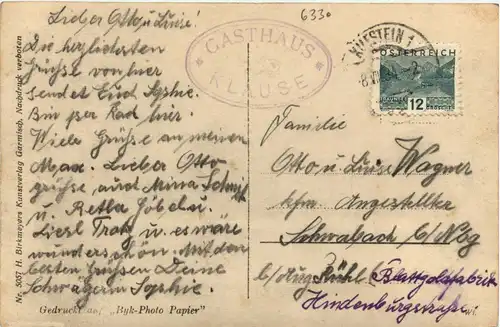 6330
Lieber Otto u. Luise!
Die herzlichsten
Grüße von hier
sendet Euch Sophie.
Bin per Rad hier.
Viele Grüße an meinen
Max. Lieber Otto
grüße auch Mina
u. Göbel u.
Liesl u. es wäre
wunderschön. Mit den
besten Grüßen Deine
Schwägerin Sophie.
GASTHAUS
KLAUSE
KUFSTEIN 1
ÖSTERREICH
12
Familie
Otto u. Luise Wagner
kfm Angestellter
Schwabach b/Nbg
b/Aug. Rühl Blattgoldfabrik
Hindenburgstraße
Nr. 5057 H. Birkmeyers Kunstverlag Garmisch, Nachdruck verboten
Gedruckt auf „Byk-Photo Papier"